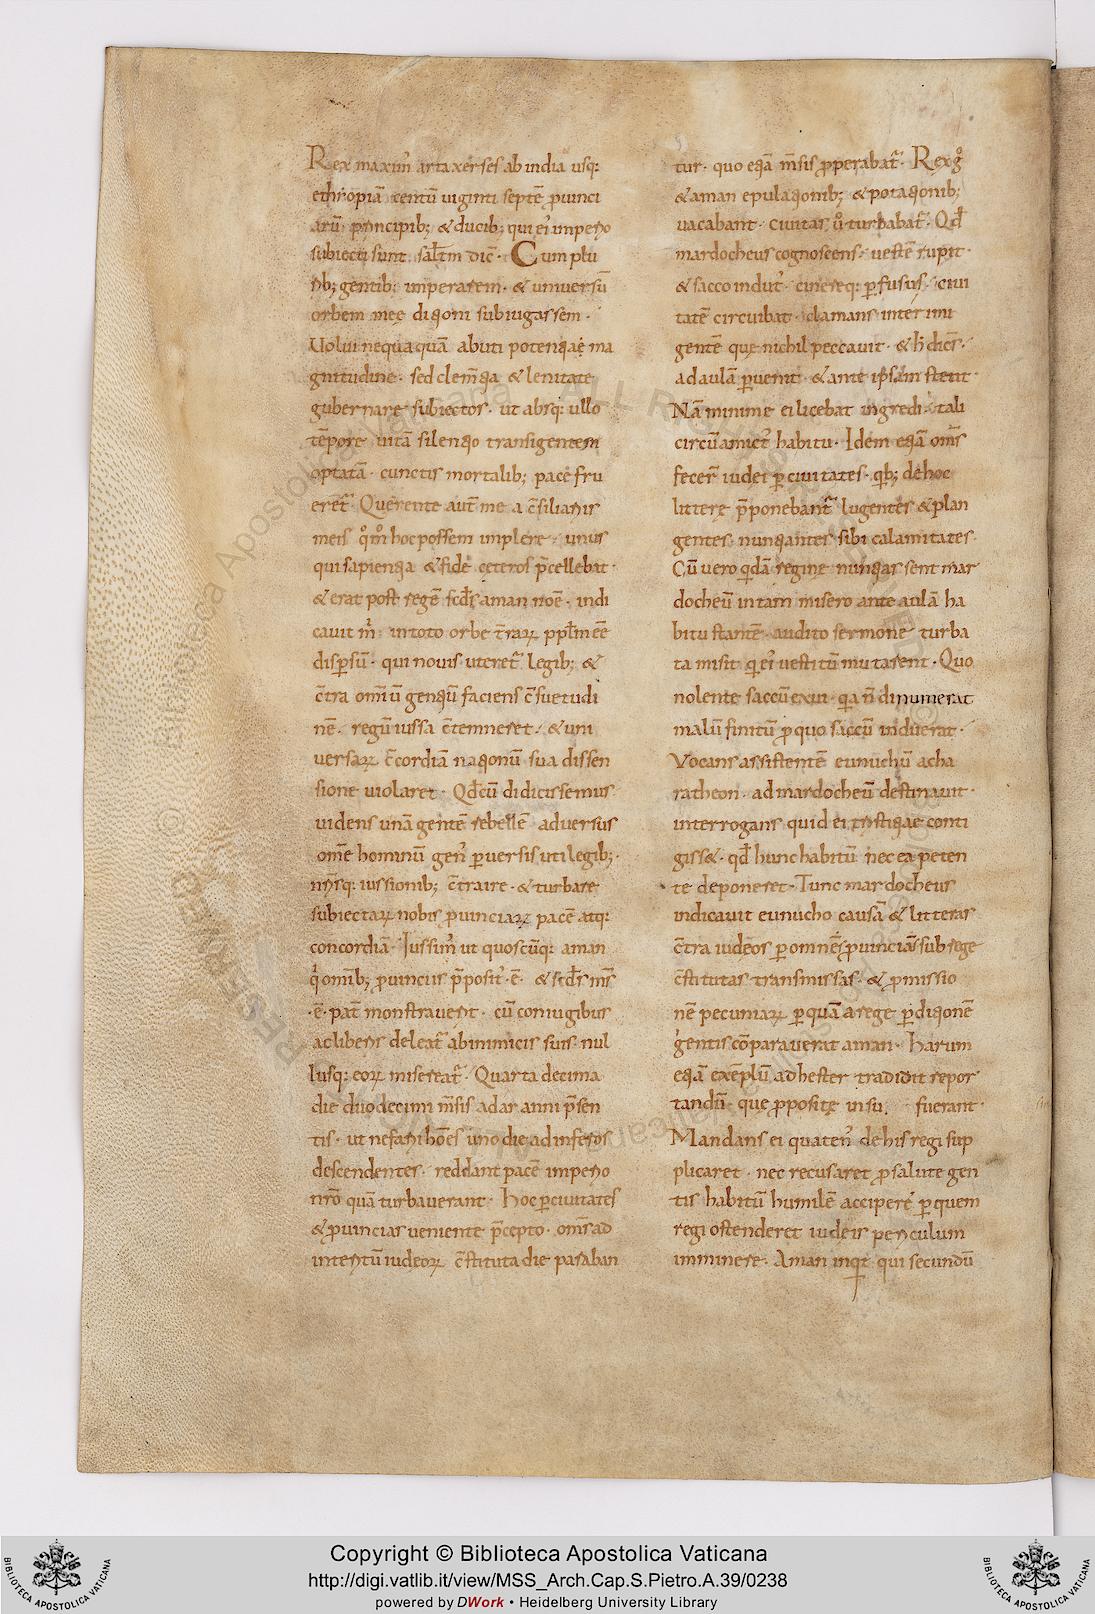 Rex maxim᾿ artaxerses ab india usq:
ethiopiā centū uiginti septē ꝓuinci
arū principib; & ducib; qui ei᾿ imperio
subiecti sunt saltm̄ dic̄· Cum plu
rib; gentib; imperarem· & uniuersū
orbem meę ditioni subiugassem·
Uolui nequaquā abuti potentiae ma
gnitudine· sed clementia & lenitate
gubernare subiectos· ut absq: ullo
tēpore uitā silentio transigentem
optatā· cunctis mortalib; pace fru
erēt᾿· Querente aut̄ me a c̄siliariis
meis q̊m̊ hoc possem implere· unus
qui sapientia & fide ceteros p̄cellebat·
& erat post regē scd᾿s aman noē· indi
cauit m᾿ in toto orbe t̄raꝝ ppl̄m eē
disꝑsū· qui nouis uteret᾿ legib; &
c̄tra om̄iū gentiū faciens c̄suetudi
nē· regū iussa c̄temneret· & uni
uersaꝝ c̄cordiā nationū sua dissen
sione uiolaret· Qd̄ cū didicissemus
uidens unā gentē rebellē aduersus
om̄e hominū gen᾿ ꝑuersis uti legib;·
nr̄isq: iussionib; c̄traire· & turbare
subiectaꝝ nobis ꝓuinciaꝝ pacē atq:
concordiā· Iussim᾿ ut quoscūq: aman
q᾿ omīb; ꝓuinciis p̄posit᾿ ē· & scd᾿s nr̄s
·ē· pat̄ monstrauerit· cū coniugibus
ac liberis deleat᾿ ab inimicis suis· nul
lusq: eoꝝ misereat᾿· Quarta decima
die duodecimi m̄sis adar anni p̄sen
tis· ut nefarii hoēs uno die ad inferos
descendentes· reddant pacē imperio
nr̄o quā turbauerant· Hoc ꝑ ciuitates
& ꝓuincias ueniente p̄cepto· om̄s ad
interitū iudeoꝝ c̄stituta die paraban
tur· quo etiā m̄sis ꝓperabat᾿· Rex g̊
& aman epulationib; & potationib;
uacabant· ciuitas ů turbabat᾿· Qd̄
mardocheus cognoscens· uestē rupit·
& sacco indut᾿· cinereq: ꝑfusus· ciui
tatē circuibat· clamans interimi
gentē que nichil peccauit· & h̄ dicēs·
ad aulā ꝑuenit· & ante ipsam stetit·
Nā minime ei licebat ingredi· tali
circūamict᾿ habitu· Idem etiā om̄s
fecer̄ iudei ꝑ ciuitates· qb; de hoc
litterę p̄ponebant᾿ lugentes & plan
gentes nuntiantes sibi calamitates·
Cū uero qdā regine nuntiassent mar
docheū in tam misero ante aulā ha
bitu stantē· audito sermone turba
ta misit q ei᾿ uestitū mutarent· Quo
nolente saccū exui· qa n̄ dinumerat
malū finitū ꝓ quo saccū induerat·
Vocans assistentē eunuchū acha
ratheon· ad mardocheū destinauit·
interrogans quid ei tristitiae conti
giss&· qd̄ hunc habitū nec ea peten
te deponeret· Tunc mardocheus
indicauit eunucho causā & litteras
c̄tra iudeos ꝑ omnēs ꝓuincias sub rege
c̄stitutas transmissas· & ꝓmissio
nē pecuniaꝝ ꝑ quā a rege ꝑditionē
gentis cōparauerat aman· Harum
etiā exēplū ad hester tradidit repor
tandū que ꝓpositę in su. fuerant·
Mandans ei quaten᾿ de his regi sup
plicaret· nec recusaret ꝓ salute gen
tis habitū humilē accipere ꝑ quem
regi ostenderet iudeis periculum
imminere· Aman inqt qui secundū
Copyright © Biblioteca Apostolica Vaticana
http://digi.vatlib.it/view/MSS_Arch.Cap.S.Pietro.A.39/0238
powered by DWork • Heidelberg University Library
BIBLIOTECA APOSTOLICA VATICANA
BIBLIOTECA APOSTOLICA VATICANA